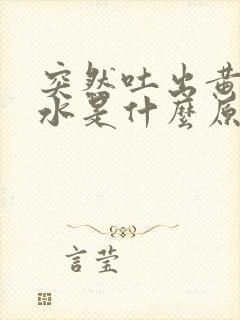 突然吐出黄
水是什麼原
言莹